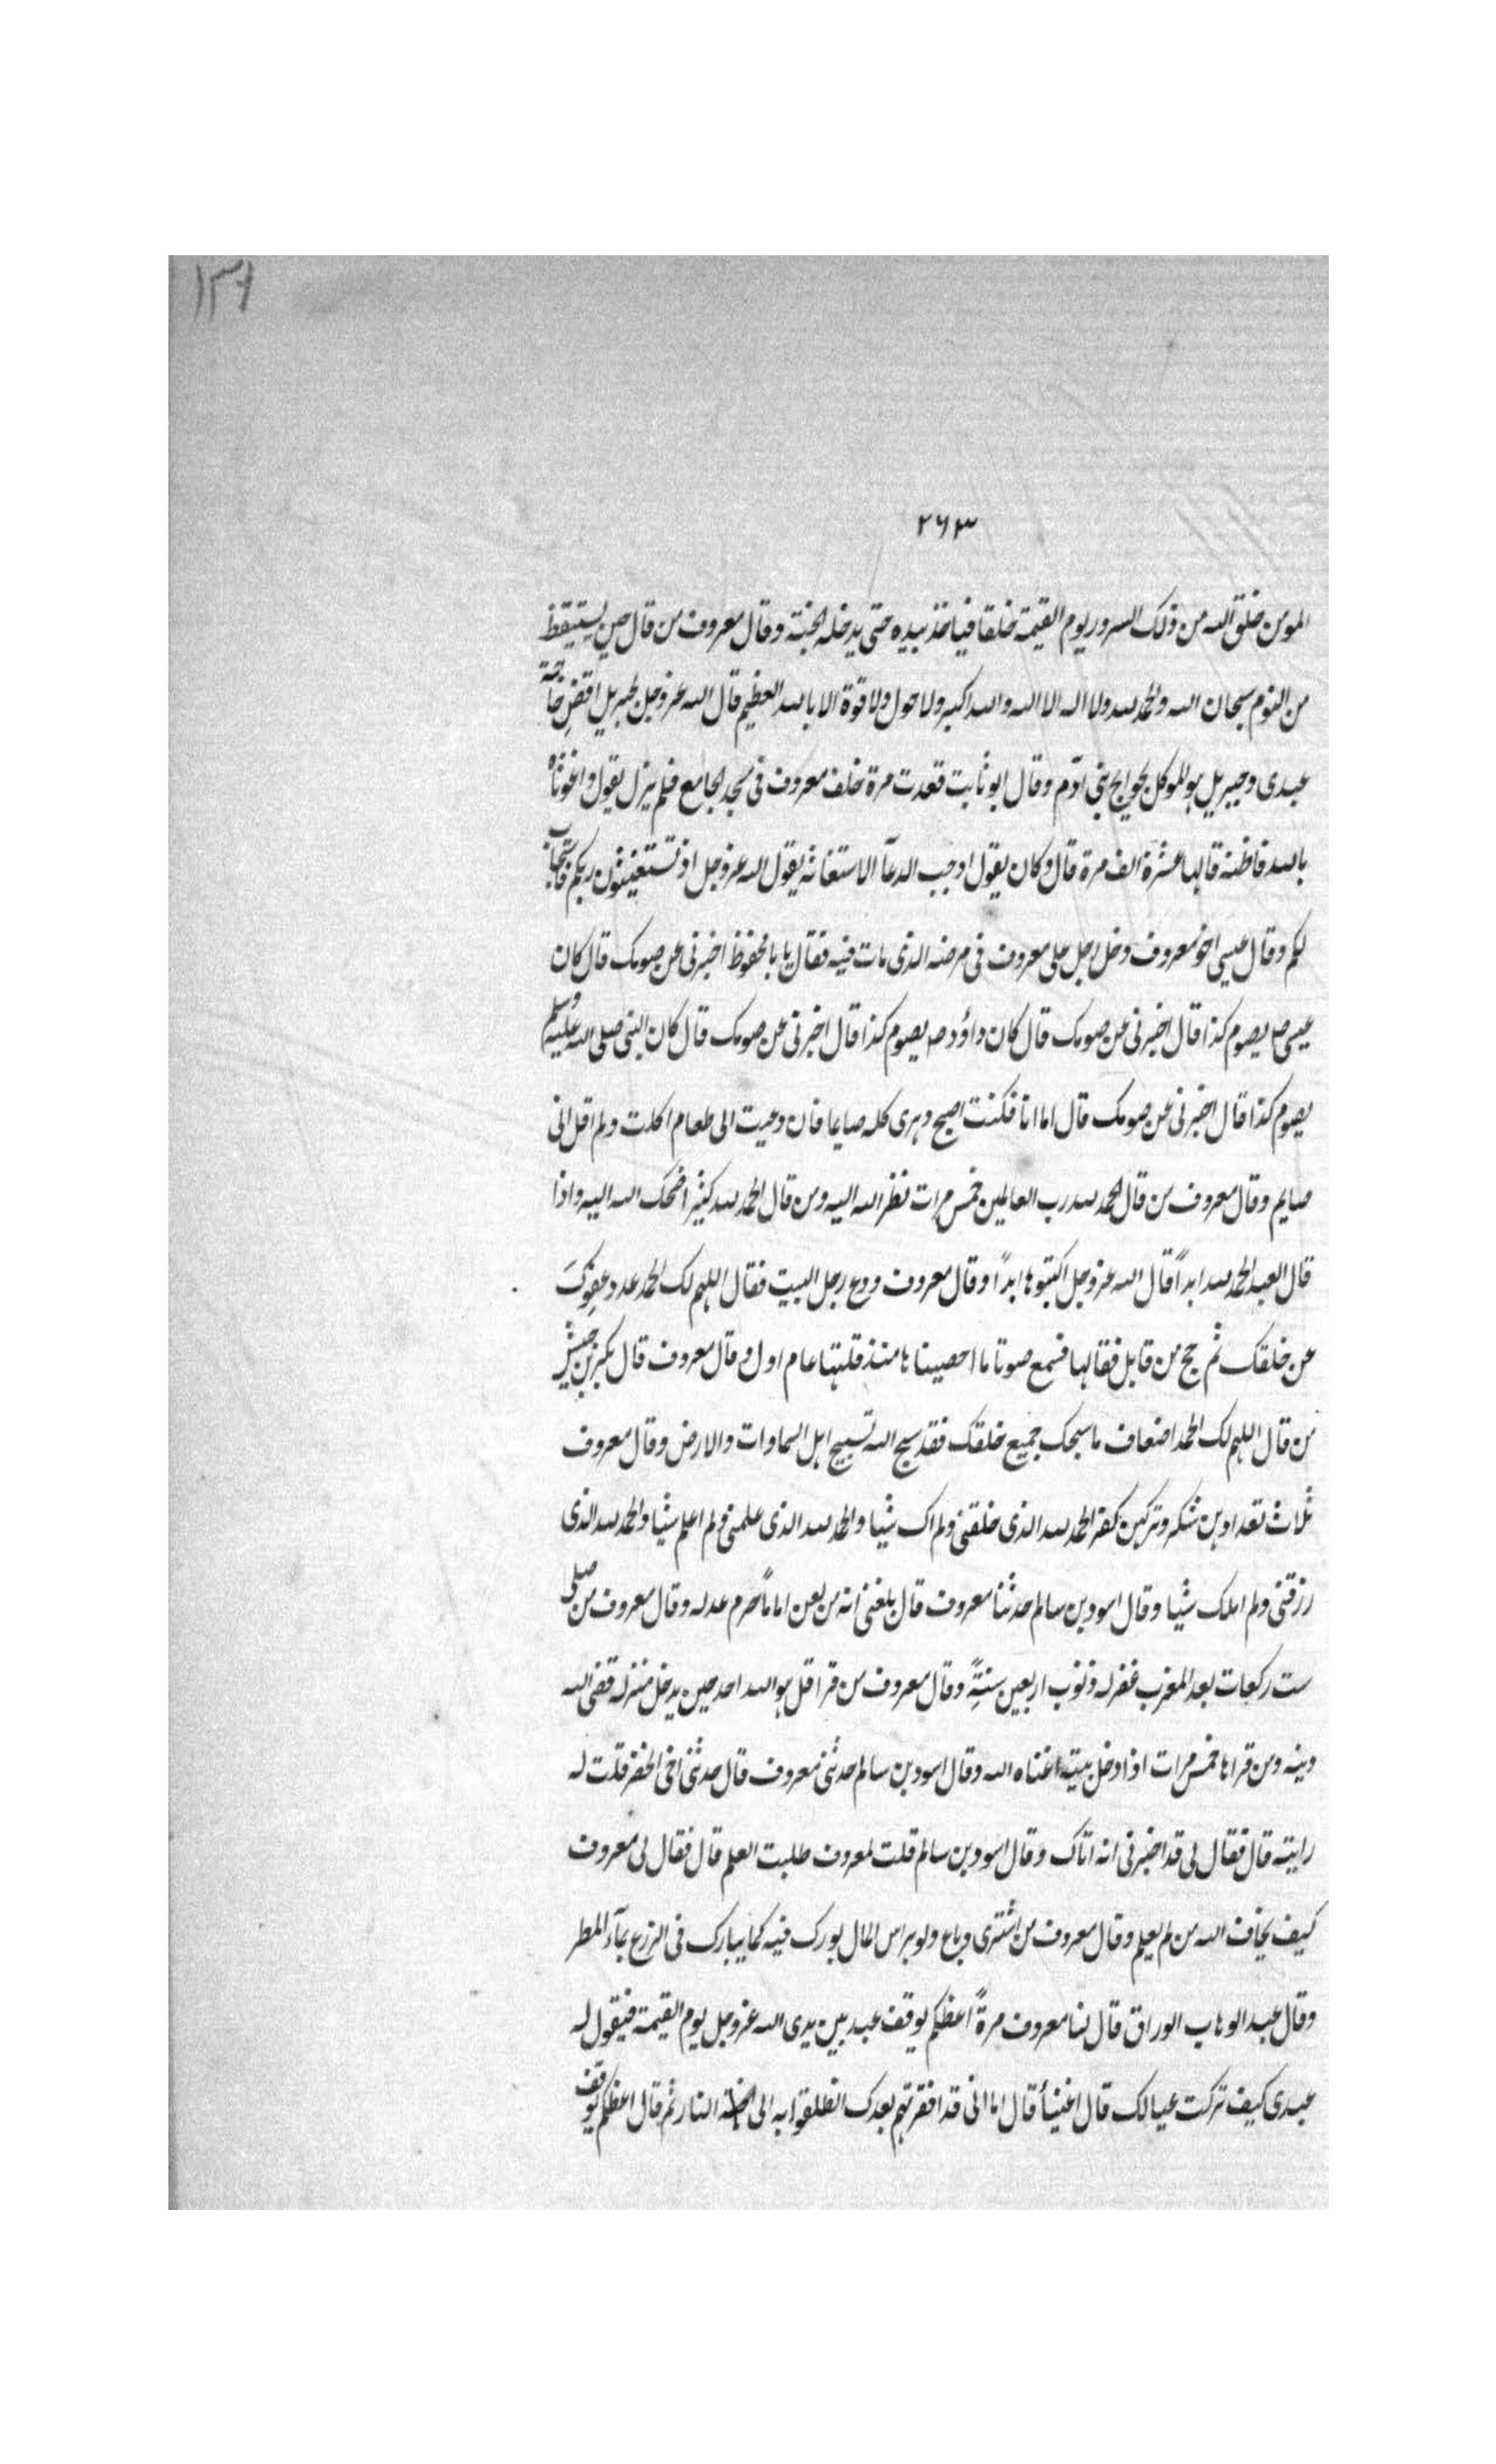 ١٣٦
٢٦٣
المومن خلق الله من ذلك السرور يوم القيمة خلقا فياخذ بيده حتى يدخله الجنة وقال معروف من قال حين يستيقظ
من النوم سبحان الله والحمد لله ولا اله الا الله والله اكبر ولا حول ولا قوة الا بالله العظيم قال الله عز وجل لجبريل اقض حاجة
عبدى وجبريل هو الموكل بحوايج بنى آدم وقال ابو ثابت قعدت مرة خلف معروف فى مسجد الجامع فلم يزل يقول واغوثاه
بالله فاظنه قالها عشرة الف مرة قال وكان يقول اوجب الدعآ الاستغاثه يقول الله عز وجل اذ تستغيثون ربكم فاستجاب
لكم وقال عيسى اخو معروف دخل رجل على معروف فى مرضه الذى مات فيه فقال يا با محفوظ اخبرنى عن صومك قال كان
عيسى صـ يصوم كذا قال اخبرنى عن صومك قال كان داؤد صـ يصوم كذا قال اخبرنى عن صومك قال كان النبى صلى الله عليه وسلم
يصوم كذا قال اخبرنى عن صومك قال اما انا فكنت اصبح دهرى كله صايما فان دعيت الى طعام اكلت ولم اقل انى
صايم وقال معروف من قال الحمد لله رب العالمين خمس مرات نظر الله اليه ومن قال الحمد لله كثيرا ضحك الله اليه واذا
قال العبد الحمد لله ابداً قال الله عز وجل اكتبوها ابداً وقال معروف ودع رجل البيت فقال اللهم لك الحمد عدد عفوك
عن خلقك ثم حج من قابل فقالها فسمع صوتا ما احصيناها منذ قلتها عام اول وقال معروف قال بكر بن خنيس
من قال اللهم لك الحمد اضعاف ما سبحك جميع خلقك فقد سبح الله تسبيح اهل السماوات والارض وقال معروف
ثلاث تعدادهن شكر وتركهن كفر الحمد لله الذى خلقنى ولم اك شيا والحمد لله الذى علمنى ولم اعلم شيا والحمد لله الذى
رزقنى ولم املك شيا وقال اسود بن سالم حدثنا معروف قال بلغنى انه من لعن اماماً حرم عدله وقال معروف من صلى
ست ركعات بعد المغرب غفر له ذنوب اربعين سنةً وقال معروف من قرا قل هو الله احد حين يدخل منزله قضى الله
دينه ومن قراها خمس مرات اذا دخل بيته اغناه الله وقال اسود بن سالم حدثنى معروف قال حدثنى اخى الخضر قلت له
رايته قال فقال لى قد اخبرنى انه اتاك وقال اسود بن سالم قلت لمعروف طلبت العلم قال فقال لى معروف
كيف يخاف الله من لم يعلم وقال معروف من اشترى وباع ولو براس المال بورك فيه كما يبارك فى الزرع بمآء المطر
وقال عبد الوهاب الوراق قال لنا معروف مرةً اعظكم يوقف عبد بين يدى الله عز وجل يوم القيمة فيقول له
عبدى كيف تركت عيالك قال اغنيآ قال اما انى قد افقرتهم بعدك انطلقوا به الى النار ثم قال اعظكم يوقف